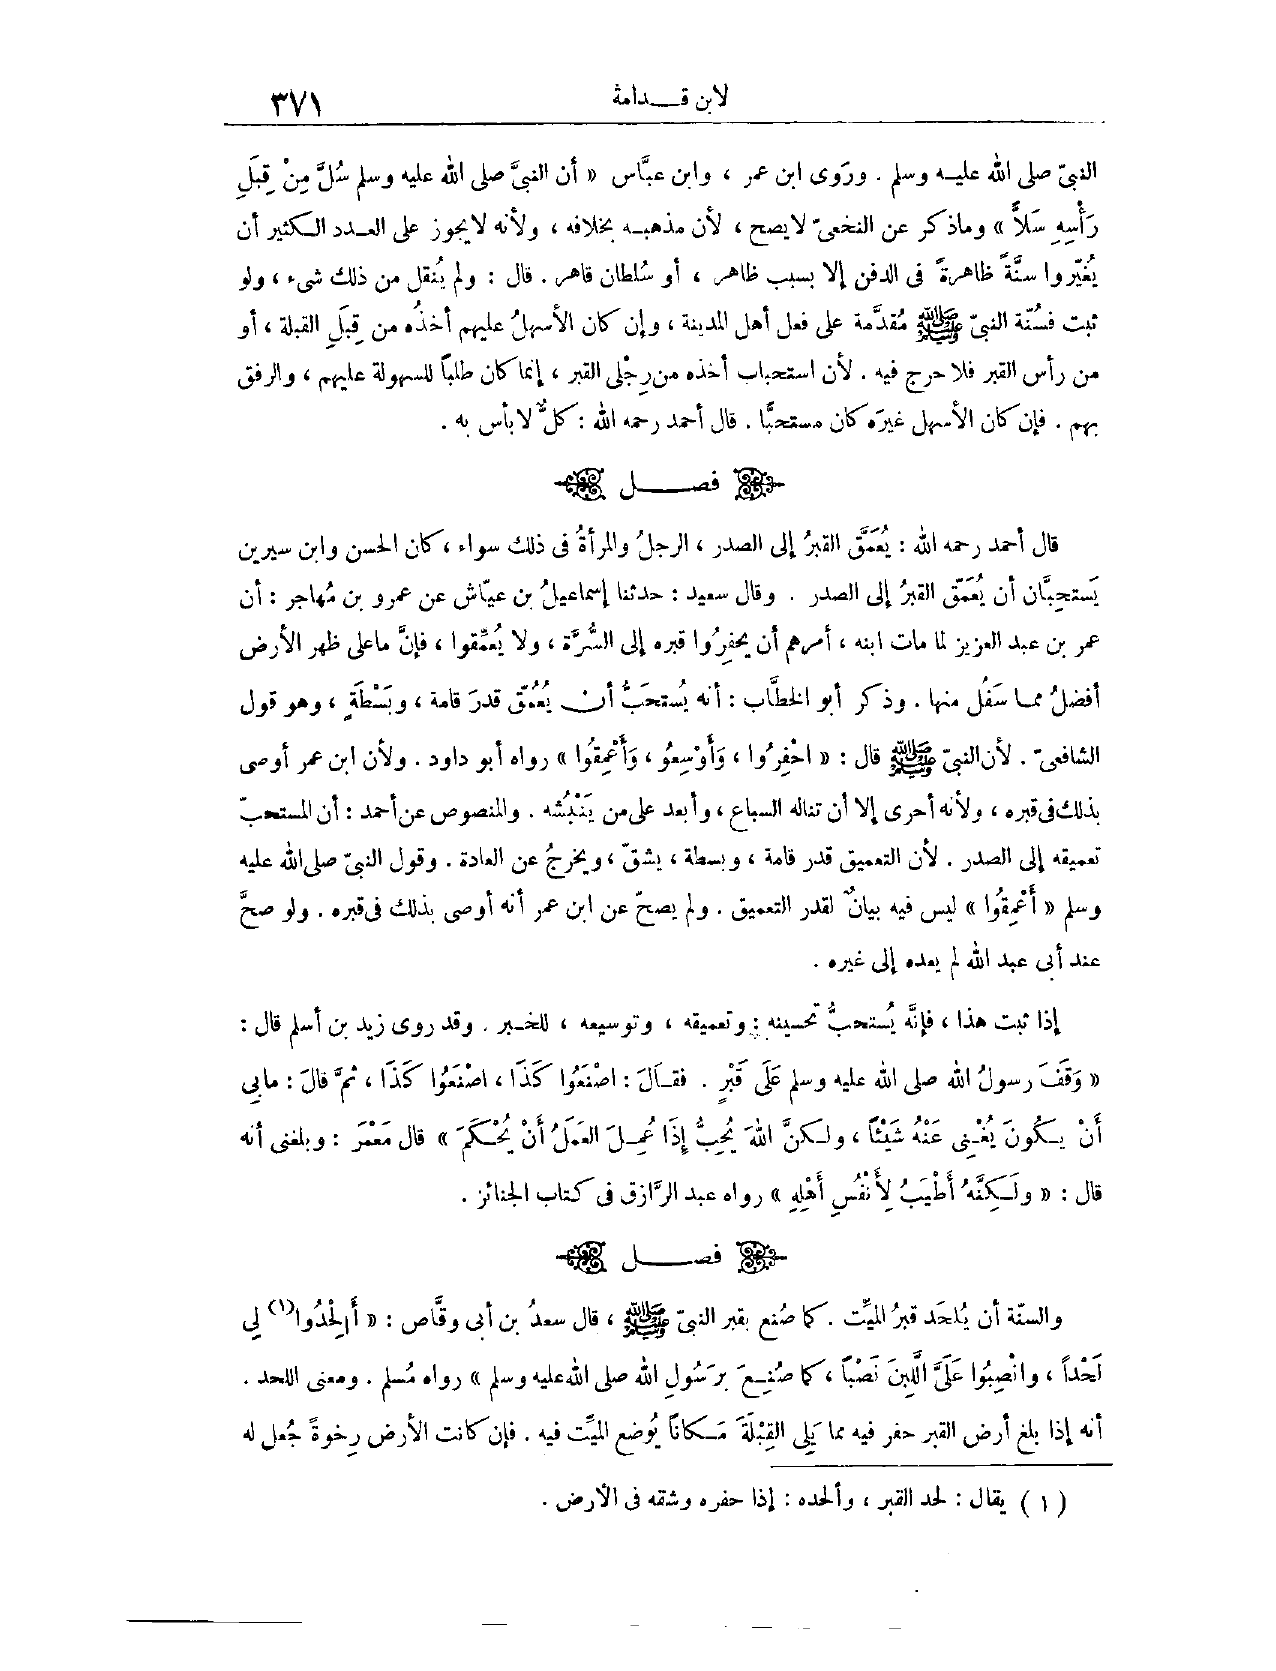 لابن قـــدامة
٣٧١
النبىّ صلى الله عليـه وسلم . وروَى ابن عمر ، وابن عبَّاس « أن النبىَّ صلى الله عليه وسلم سُلَّ مِنْ قِبَلِ
رَأْسِهِ سَلاًّ » وماذكر عن النخعىّ لايصح ، لأن مذهبـه بخلافه ، ولأنه لايجوز على العـدد الـكثير أن
يُغيّروا سنَّةً ظاهرةً فى الدفن إلا بسبب ظاهر ، أو سُلطان قاهر . قال : ولم يُنقل من ذلك شىء ، ولو
ثبت فسُنّة النبىّ ﷺ مُقدَّمة على فعل أهل المدينة ، وإن كان الأسهلُ عليهم أخذُه من قِبَلِ القبلة ، أو
من رأس القبر فلا حرج فيه . لأن استحباب أخذه من رِجْلى القبر ، إنما كان طلباً للسهولة عليهم ، والرفق
بهم . فإن كان الأسهل غيرَه كان مستحبًّا . قال أحمد رحمه الله : كلٌّ لا بأس به .
فصـــــل
قال أحمد رحمه الله : يُعَمَّق القبرُ إلى الصدر ، الرجلُ والمرأةُ فى ذلك سواء ، كان الحسن وابن سيرين
يَستحِبَّان أن يُعَمّق القبرُ إلى الصدر . وقال سعيد : حدثنا إسماعيلُ بن عيّاش عن عمرو بن مُهاجر : أن
عمر بن عبد العزيز لما مات ابنه ، أمرهم أن يحفِرُوا قبره إلى السُّرَّة ، ولا يُعمِّقوا ، فإنَّ ماعلى ظهر الأرض
أفضلُ ممـا سَفُل منها . وذكر أبو الخطَّاب : أنه يُستحَبُّ أن يُعُمّق قدرَ قامة ، وبَسْطَةٍ ، وهو قول
الشافعىّ . لأن النبىّ ﷺ قال : « احْفِرُوا ، وَأَوْسِعُو ، وَأَعْمِقُوا » رواه أبو داود . ولأن ابن عمر أوصى
بذلك فى قبره ، ولأنه أحرى إلا أن تناله السباع ، وأبعد على من يَنْبُشه . والمنصوص عن أحمد : أن المستحبّ
تعميقه إلى الصدر . لأن التعميق قدر قامة ، وبسطة ، يشقّ ، ويخرجُ عن العادة . وقول النبىّ صلى الله عليه
وسلم « أَعْمِقُوا » ليس فيه بيانٌ لقدر التعميق . ولم يصحّ عن ابن عمر أنه أوصى بذلك فى قبره . ولو صحَّ
عند أبى عبد الله لم يعده إلى غيره .
إذا ثبت هذا ، فإنَّه يُستحبُّ تحسينه : وتعميقه ، وتوسيعه ، للخـبر . وقد روى زيد بن أسلم قال :
« وَقَفَ رسولُ الله صلى الله عليه وسلم عَلَى قَبْرٍ . فقـالَ : اصْنَعُوا كَذَا ، اصْنَعُوا كَذَا ، ثمَّ قالَ : مابِى
أَنْ يـكُونَ يُغْـنِى عَنْهُ شَيْئاً ، ولـكنَّ اللهَ يُحِبُّ إِذَا عُمِـلَ العَمَلُ أَنْ يُحْـكَمَ » قال مَعْمَر : وبلغنى أنه
قال : « ولَـكِنَّهُ أَطْيَبُ لِأَنْفُسِ أَهْلِهِ » رواه عبد الرَّازق فى كتاب الجنائز .
فصـــــل
والسنّة أن يُلحَد قبرُ الميِّت . كما صُنع بقبر النبىّ ﷺ ، قال سعدُ بن أبى وقَّاص : « أَلحْدُوا(١) لِى
لَحْداً ، وانْصِبُوا عَلَىَّ اللَّبِنَ نَصْباً ، كما صُنِـعَ برَسُولِ الله صلى الله عليه وسلم » رواه مُسلم . ومعنى اللحد .
أنه إذا بلغ أرض القبر حفر فيه مما يَلِى القِبْلَةَ مَـكاناً يُوضع الميِّت فيه . فإن كانت الأرض رِخوةً جُعل له
( ١ ) يقال : لحد القبر ، وألحده : إذا حفره وشقه فى الأرض .